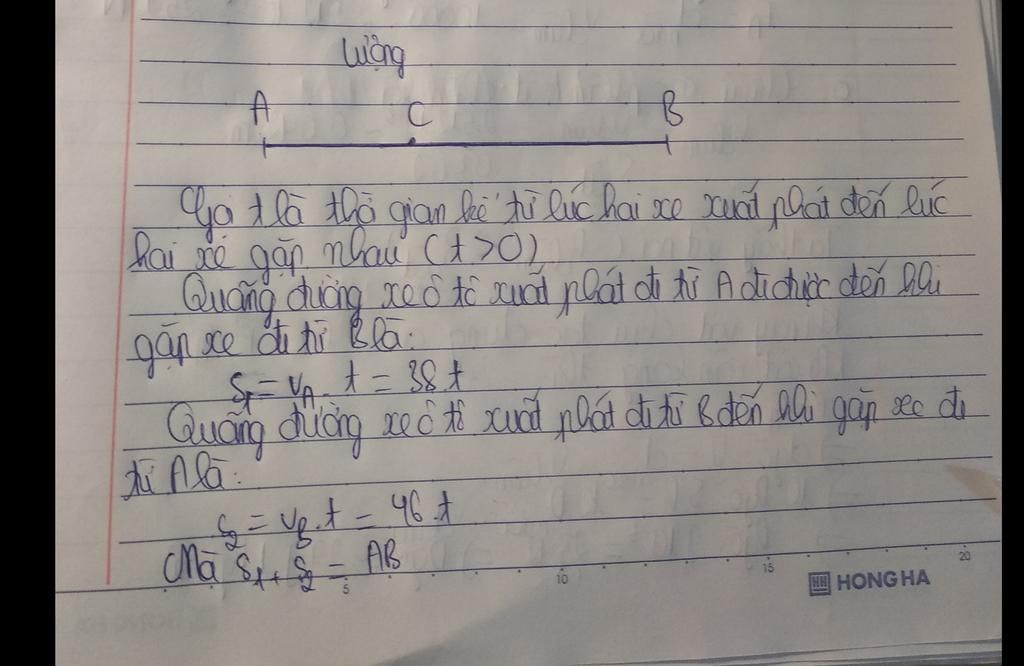 Lượng
A C B
Gọi t là thời gian kể từ lúc hai xe xuất phát đến lúc
hai xe gặp nhau (t>0)
Quãng đường xe ô tô xuất phát đi từ A đi được đến khi
gặp xe đi từ B là:
S₁ = v_A . t = 38 t
Quãng đường xe ô tô xuất phát đi từ B đến khi gặp xe đi
từ A là:
S₂ = v_B . t = 46 . t
Mà S₁ + S₂ = AB
5 10 15 20
HONG HA